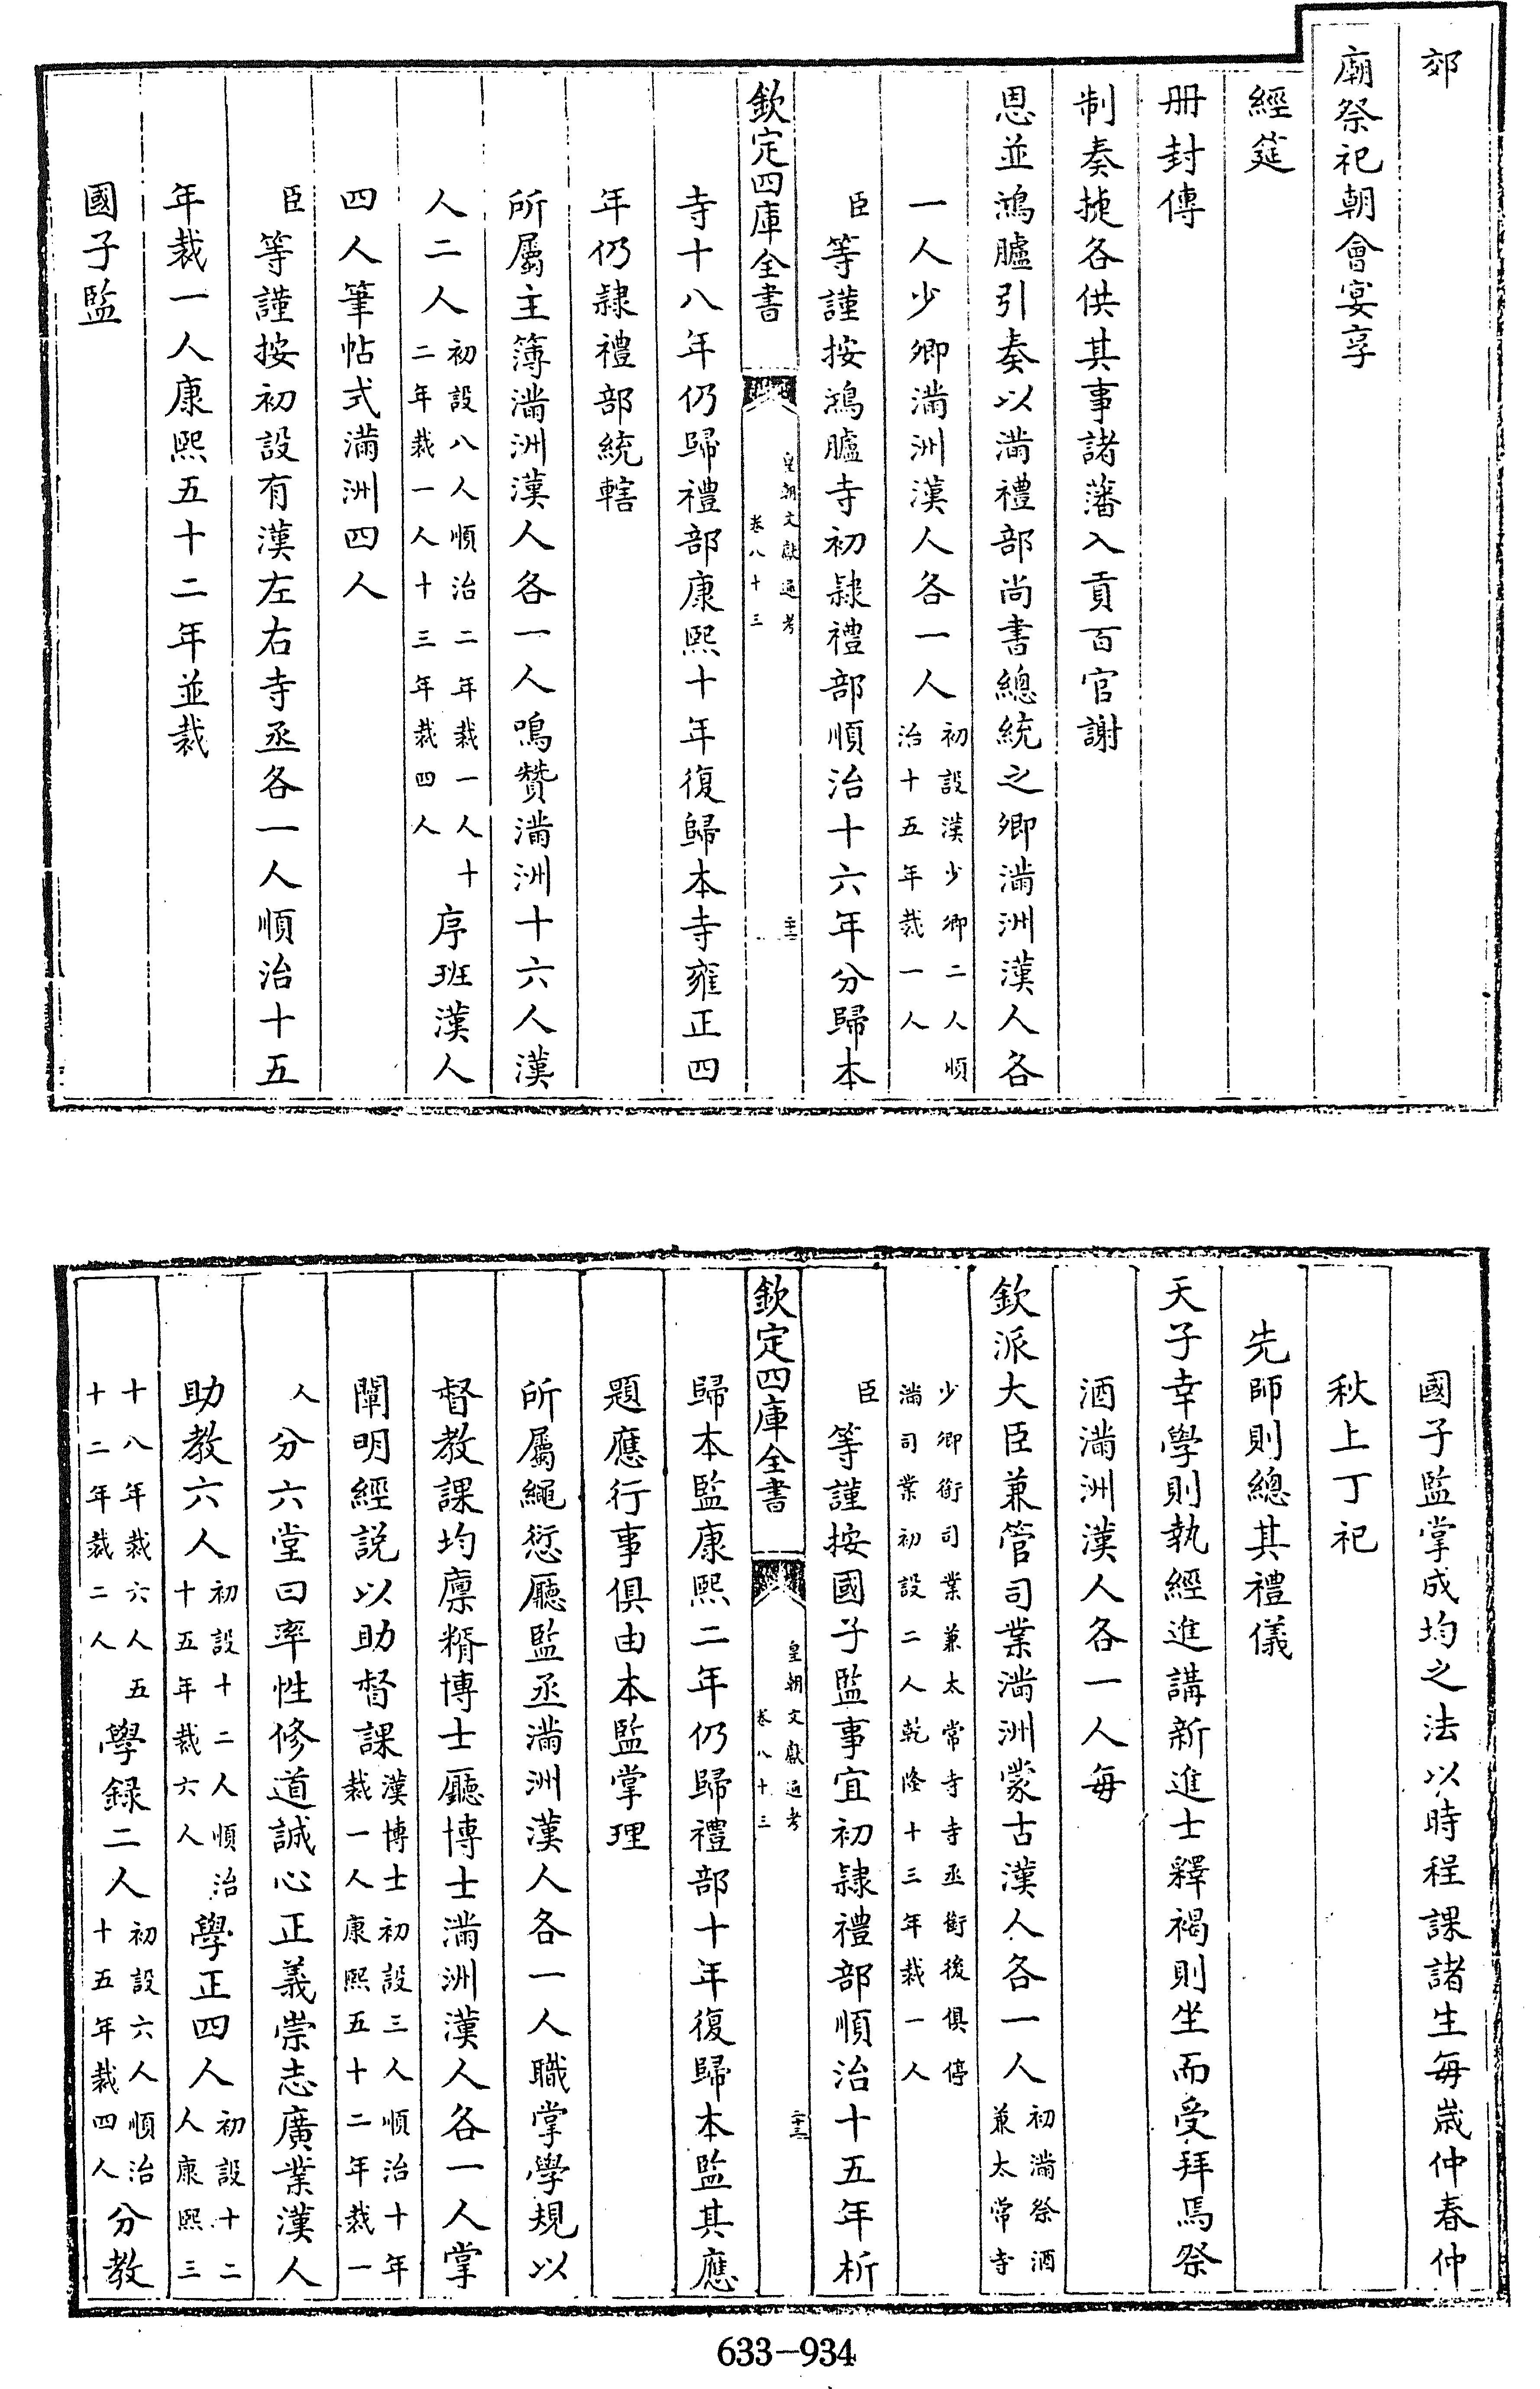 郊
廟祭祀朝會宴享
經筵
册封傳
制奏捷各供其事諸藩入貢百官謝
恩並鴻臚引奏以滿禮部尚書總統之卿滿洲漢人各
一人少卿滿洲漢人各一人初設漢少卿二人順
治十五年裁一人
臣等謹按鴻臚寺初隸禮部順治十六年分歸本
欽定四庫全書
皇朝文獻通考
卷八十三
二十三
寺十八年仍歸禮部康熙十年復歸本寺雍正四
年仍隸禮部統轄
所屬主簿滿洲漢人各一人鳴贊滿洲十六人漢
人二人初設八人順治二年裁一人十
二年裁一人十三年裁四人序班漢人
四人筆帖式滿洲四人
臣等謹按初設有漢左右寺丞各一人順治十五
年裁一人康熙五十二年並裁
國子監
國子監掌成均之法以時程課諸生每歲仲春仲
秋上丁祀
先師則總其禮儀
天子幸學則執經進講新進士釋褐則坐而受拜焉祭
酒滿洲漢人各一人每
欽派大臣兼管司業滿洲蒙古漢人各一人初滿祭酒
兼太常寺
少卿銜司業兼太常寺寺丞銜後俱停
滿司業初設二人乾隆十三年裁一人
臣等謹按國子監事宜初隸禮部順治十五年析
欽定四庫全書
皇朝文獻通考
卷八十三
歸本監康熙二年仍歸禮部十年復歸本監其應
題應行事俱由本監掌理
所屬繩愆廳監丞滿洲漢人各一人職掌學規以
督教課均廪糈博士廳博士滿洲漢人各一人掌
闡明經説以助督課漢博士初設三人順治十年
裁一人康熙五十二年裁一
人分六堂曰率性修道誠心正義崇志廣業漢人
助教六人初設十二人順治
十五年裁六人學正四人初設十二
人康熙三
十八年裁六人五
十二年裁二人學録二人初設六人順治
十五年裁四人分教
633-934